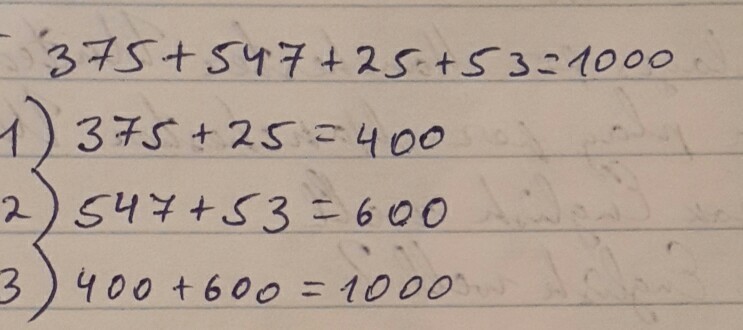 375+547+25+53=1000
1) 375+25=400
2) 547+53=600
3) 400+600=1000